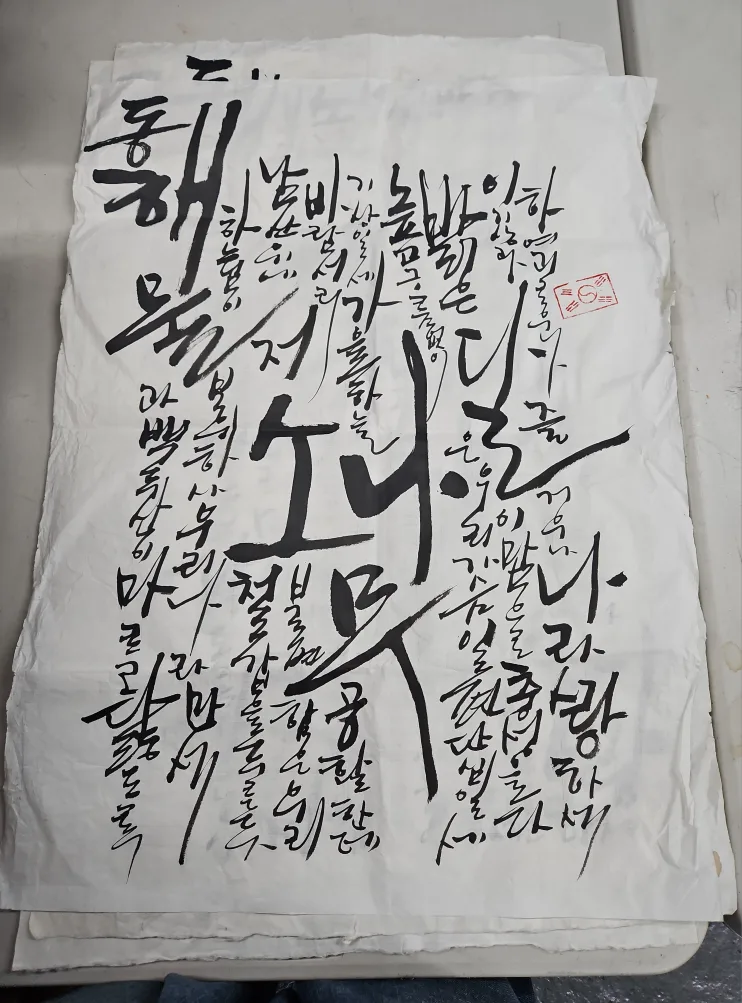 동해물과 백두산이 마르고 닳도록
하느님이 보우하사 우리나라만세
남산위에 저 소나무 철갑을 두른듯
바람서리 불변함은 우리
기상일세 가을하늘 공활한데
높고 구름없이
밝은 달은 우리가슴 일편단심일세
이 기상과 이 맘으로 충성을 다
하여 괴로우나 즐거우나 나라사랑하세